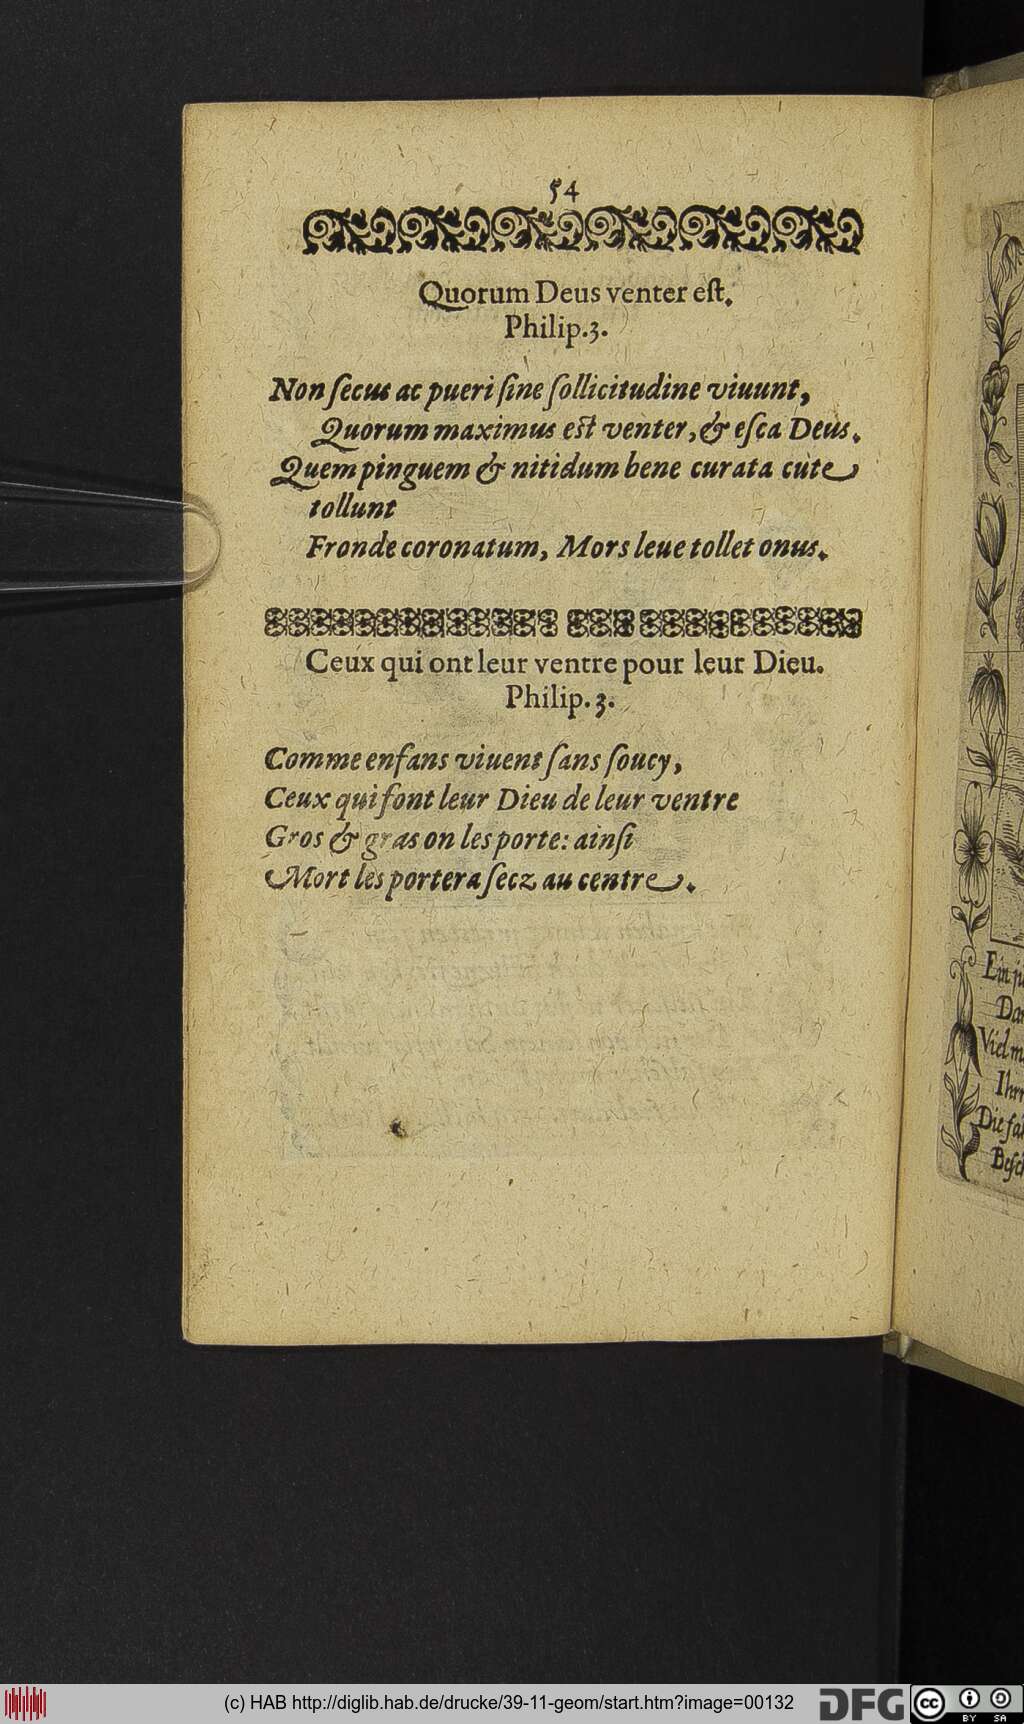 54
Quorum Deus venter eſt.
Philip.3.
Non ſecus ac pueri ſine ſollicitudine viuunt,
Quorum maximus eſt venter, & eſca Deus.
Quem pinguem & nitidum bene curata cute
tollunt
Fronde coronatum, Mors leue tollet onus.
Ceux qui ont leur ventre pour leur Dieu.
Philip. 3.
Comme enfans viuent ſans ſoucy,
Ceux qui font leur Dieu de leur ventre
Gros & gras on les porte: ainſi
Mort les portera ſecz au centre.
Ein
Viel
Die
(c) HAB http://diglib.hab.de/drucke/39-11-geom/start.htm?image=00132
DFG
cc
BY SA